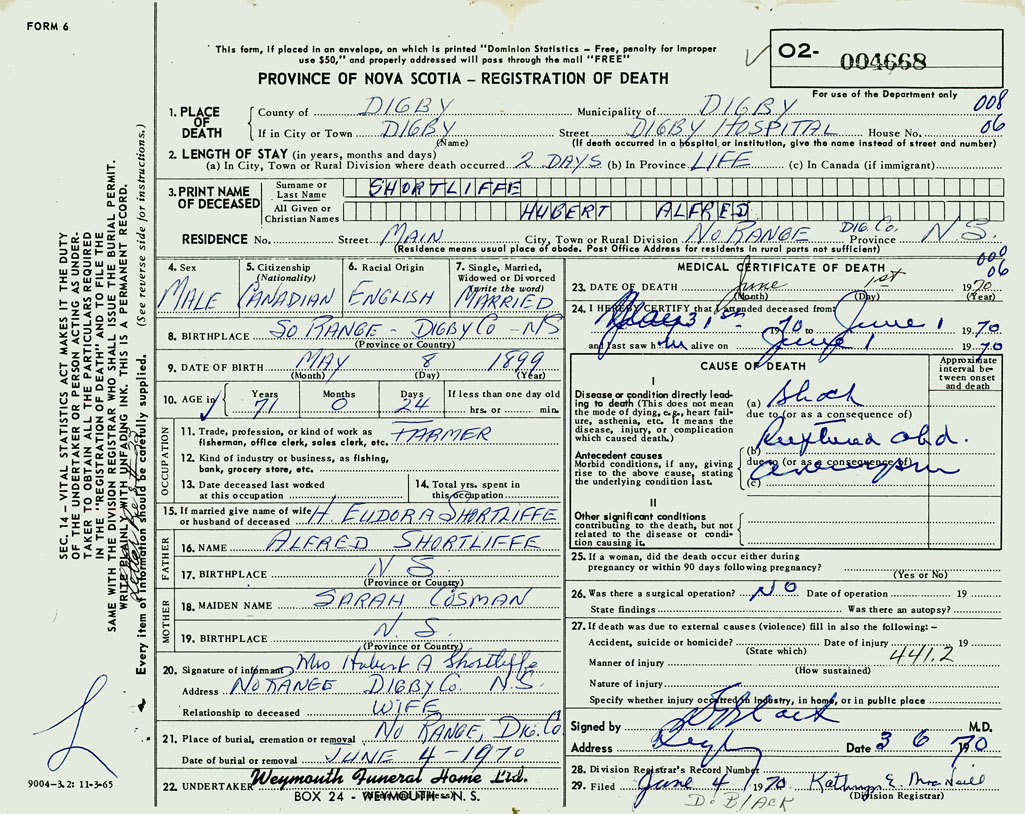 FORM 6
This form, if placed in an envelope, on which is printed "Dominion Statistics — Free, penalty for improper
use $50," and properly addressed will pass through the mail "FREE"
PROVINCE OF NOVA SCOTIA – REGISTRATION OF DEATH
O2- 004668
For use of the Department only
008
06
1. PLACE OF DEATH
County of DIGBY Municipality of DIGBY
If in City or Town DIGBY Street DIGBY HOSPITAL House No.
(Name) (If death occurred in a hospital or institution, give the name instead of street and number)
2. LENGTH OF STAY (in years, months and days)
(a) In City, Town or Rural Division where death occurred 2 DAYS (b) In Province LIFE (c) In Canada (if immigrant)
3. PRINT NAME OF DECEASED
Surname or Last Name SHORTLIFFE
All Given or Christian Names HUBERT ALFRED
RESIDENCE No. Street MAIN City, Town or Rural Division NO RANGE DIG. CO. Province N S.
(Residence means usual place of abode. Post Office Address for residents in rural parts not sufficient)
000
06
4. Sex MALE
5. Citizenship (Nationality) CANADIAN
6. Racial Origin ENGLISH
7. Single, Married, Widowed or Divorced (write the word) MARRIED
8. BIRTHPLACE SO RANGE - DIGBY CO - NS
(Province or Country)
9. DATE OF BIRTH MAY 8 1899
(Month) (Day) (Year)
10. AGE in Years 71 Months 0 Days 24 If less than one day old
hrs. or min.
OCCUPATION
11. Trade, profession or kind of work as
fisherman, office clerk, sales clerk, etc. FARMER
12. Kind of industry or business, as fishing,
bank, grocery store, etc.
13. Date deceased last worked
at this occupation
14. Total yrs. spent in
this occupation
15. If married give name of wife
or husband of deceased H. EUDORA SHORTLIFFE
FATHER
16. NAME ALFRED SHORTLIFFE
17. BIRTHPLACE N S.
(Province or Country)
MOTHER
18. MAIDEN NAME SARAH COSMAN
19. BIRTHPLACE N. S.
(Province or Country)
20. Signature of informant Mrs Hubert A Shortliffe
Address NO RANGE DIGBY CO. N.S.
Relationship to deceased WIFE
21. Place of burial, cremation or removal NO RANGE, DIG. CO
Date of burial or removal JUNE 4 - 1970
22. UNDERTAKER Weymouth Funeral Home Ltd.
BOX 24 - WEYMOUTH - N. S.
MEDICAL CERTIFICATE OF DEATH
23. DATE OF DEATH June 1st 1970
(Month) (Day) (Year)
24. I HEREBY CERTIFY that I attended deceased from
May 31st 1970 to June 1 1970
and last saw him alive on June 1 1970
CAUSE OF DEATH
Approximate interval between onset and death
I
Disease or condition directly leading to death (This does not mean
the mode of dying, e.g., heart failure, asthenia, etc. It means the
disease, injury, or complication
which caused death.)
(a) Shock
due to (or as a consequence of)
Antecedent causes
Morbid conditions, if any, giving
rise to the above cause, stating
the underlying condition last.
(b) Ruptured abd.
due to (or as a consequence of)
aneurysm
(c)
II
Other significant conditions
contributing to the death, but not
related to the disease or condition causing it.
25. If a woman, did the death occur either during
pregnancy or within 90 days following pregnancy?
(Yes or No)
26. Was there a surgical operation? NO Date of operation 19
State findings Was there an autopsy?
27. If death was due to external causes (violence) fill in also the following: –
Accident, suicide or homicide? Date of injury 19
(State which)
441.2
Manner of injury
(How sustained)
Nature of injury
Specify whether injury occurred in Industry, in home, or in public place
Signed by Black M.D.
Address Digby Date 3 6 1970
28. Division Registrar's Record Number
29. Filed June 4 1970 Kathryn E. MacNeill
(Division Registrar)
D. BLACK
SEC. 14 – VITAL STATISTICS ACT MAKES IT THE DUTY
OF THE UNDERTAKER OR PERSON ACTING AS UNDERTAKER TO OBTAIN ALL THE PARTICULARS REQUIRED
IN THE "REGISTRATION OF DEATH" AND TO FILE THE
SAME WITH THE DIVISION REGISTRAR WHO SHALL ISSUE THE BURIAL PERMIT.
WRITE PLAINLY WITH UNFADING INK. THIS IS A PERMANENT RECORD.
Every item of information should be carefully supplied. (See reverse side for instructions.)
9004-3.2: 11-3-65